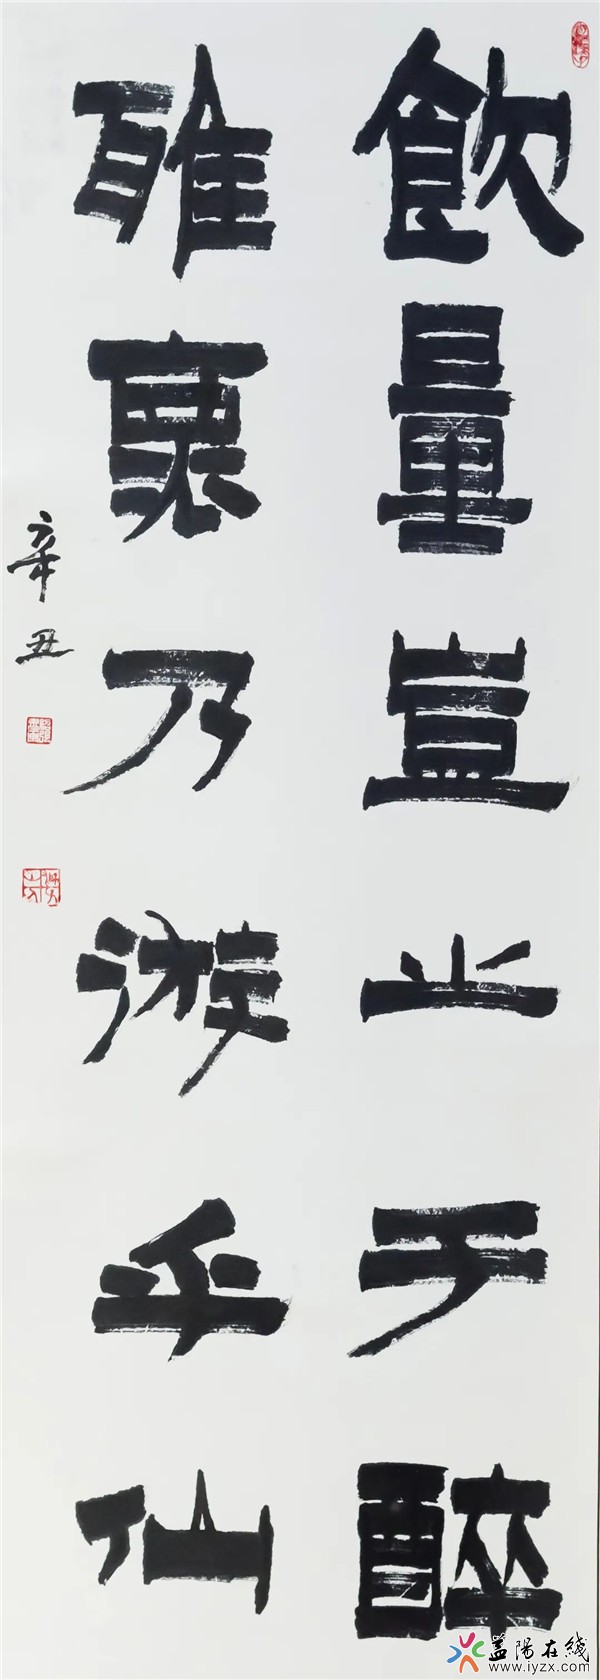 飲量豈止于醉
雅褱乃游乎仙
辛丑
益陽在线
www.iyzx.com